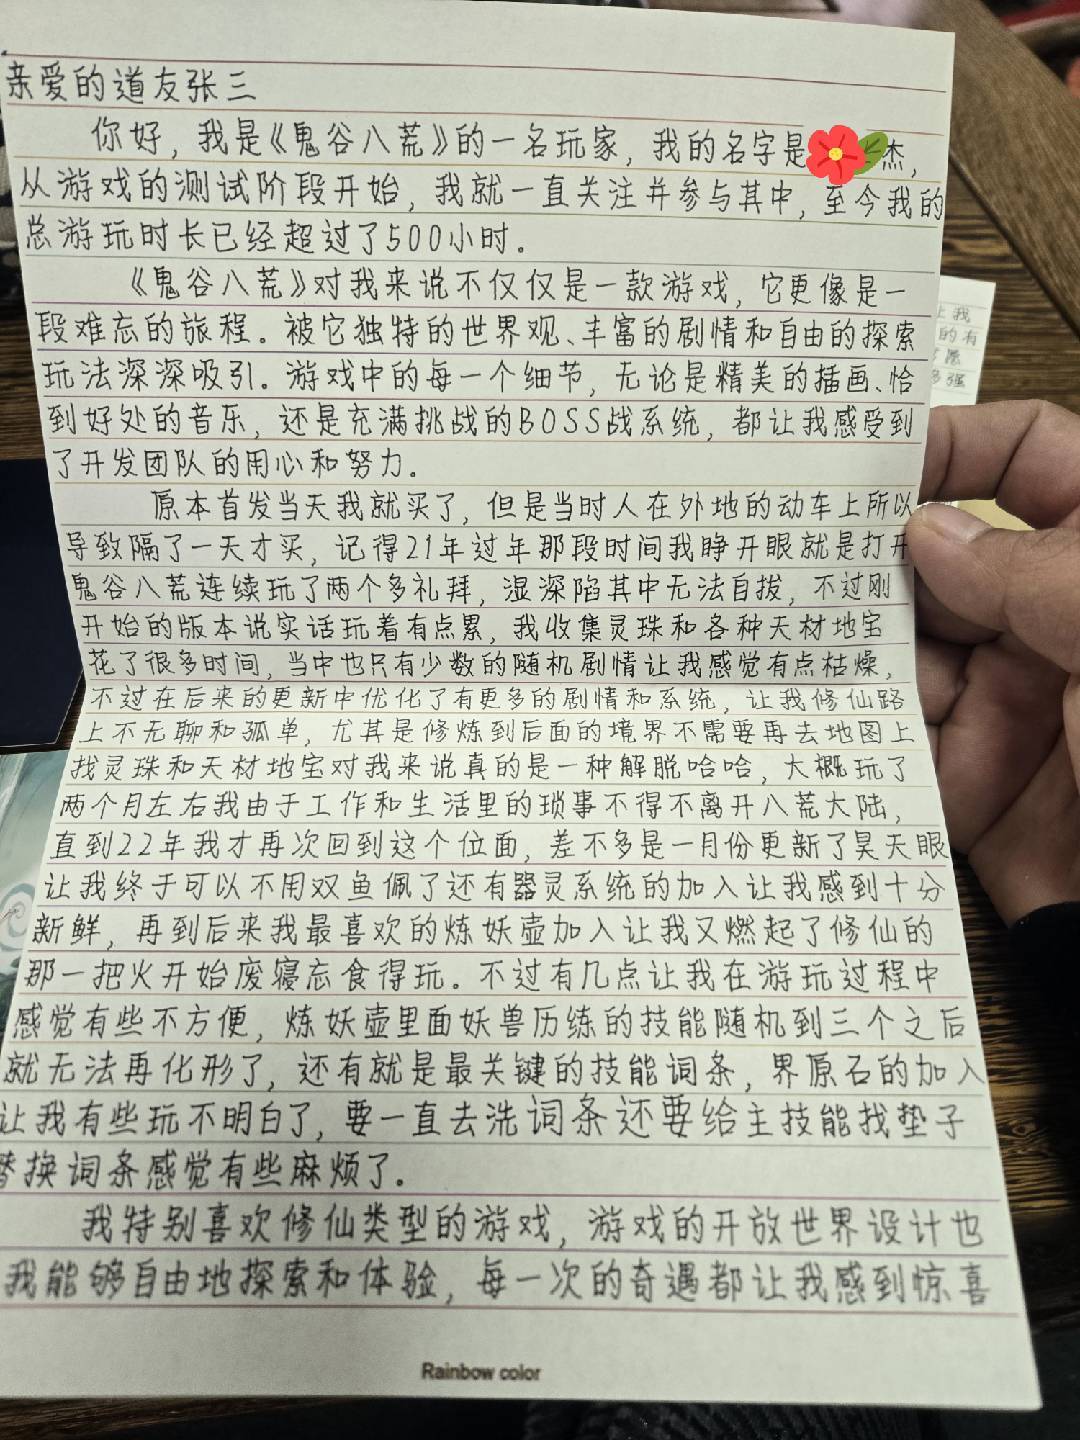 亲爱的道友张三
你好，我是《鬼谷八荒》的一名玩家，我的名字是杰，
从游戏的测试阶段开始，我就一直关注并参与其中，至今我的
总游玩时长已经超过了500小时。
《鬼谷八荒》对我来说不仅仅是一款游戏，它更像是一
段难忘的旅程。被它独特的世界观、丰富的剧情和自由的探索
玩法深深吸引。游戏中的每一个细节，无论是精美的插画、恰
到好处的音乐，还是充满挑战的BOSS战系统，都让我感受到
了开发团队的用心和努力。
原本首发当天我就买了，但是当时人在外地的动车上所以
导致隔了一天才买，记得21年过年那段时间我睁开眼就是打开
鬼谷八荒连续玩了两个多礼拜，湿深陷其中无法自拔，不过刚
开始的版本说实话玩着有点累，我收集灵珠和各种天材地宝
花了很多时间，当中也只有少数的随机剧情让我感觉有点枯燥，
不过在后来的更新中优化了有更多的剧情和系统，让我修仙路
上不无聊和孤单，尤其是修炼到后面的境界不需要再去地图上
找灵珠和天材地宝对我来说真的是一种解脱哈哈，大概玩了
两个月左右我由于工作和生活里的琐事不得不离开八荒大陆，
直到22年我才再次回到这个位面，差不多是一月份更新了昊天眼
让我终于可以不用双鱼佩了还有器灵系统的加入让我感到十分
新鲜，再到后来我最喜欢的炼妖壶加入让我又燃起了修仙的
那一把火开始废寝忘食得玩。不过有几点让我在游玩过程中
感觉有些不方便，炼妖壶里面妖兽历练的技能随机到三个之后
就无法再化形了，还有就是最关键的技能词条，界原石的加入
让我有些玩不明白了，要一直去洗词条还要给主技能找垫子
替换词条感觉有些麻烦了。
我特别喜欢修仙类型的游戏，游戏的开放世界设计也
我能够自由地探索和体验，每一次的奇遇都让我感到惊喜
Rainbow color
上我
的有
愿
多强